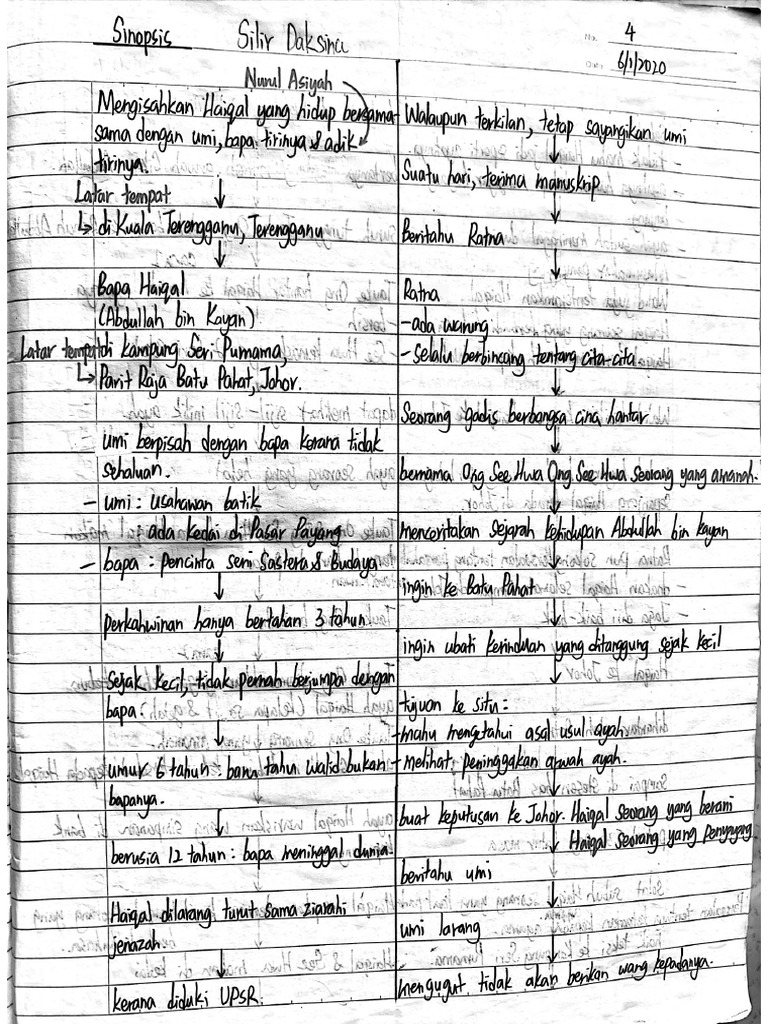 Sinopsis Silir Daksina
4
6/1/2020
Nurul Asiyah
Mengisahkan Haiqal yang hidup bersama-
sama dengan umi, bapa tirinya & adik
tirinya.
Latar tempat
↳ di Kuala Terengganu, Terengganu
Bapa Haiqal
(Abdullah bin Kayan)
Latar tempat di Kampung Seri Purnama,
↳ Parit Raja Batu Pahat, Johor.
umi berpisah dengan bapa kerana tidak
sehaluan.
- umi : usahawan batik
ada kedai di Pasar Payang
- bapa : pencinta seni Sastera & Budaya
perkahwinan hanya bertahan 3 tahun
Sejak kecil, tidak pernah berjumpa dengan
bapa.
umur 6 tahun : baru tahu walid bukan
bapanya.
berusia 12 tahun : bapa meninggal dunia.
Haiqal dilarang turut sama ziarahi
jenazah
kerana diduki UPSR.
Walaupun terkilan, tetap sayangikan umi
Suatu hari, terima manuskrip
Beritahu Ratna
Ratna
- ada warung
- selalu berbincang tentang cita-cita
Seorang gadis berbangsa cina hantar
bernama Ong See Hwa Ong See Hwa Seorang yang amanah.
menceritakan sejarah kehidupan Abdullah bin kayan
ingin ke Batu Pahat
ingin ubati kerinduan yang ditanggung sejak kecil
tujuan ke situ :
- mahu mengetahui asal usul ayah
- melihat peninggakan arwah ayah.
buat keputusan ke Johor. Haiqal seorang yang berani
Haiqal seorang yang penyayang
beritahu umi
umi larang
mengugut tidak akan berikan wang kepadanya.